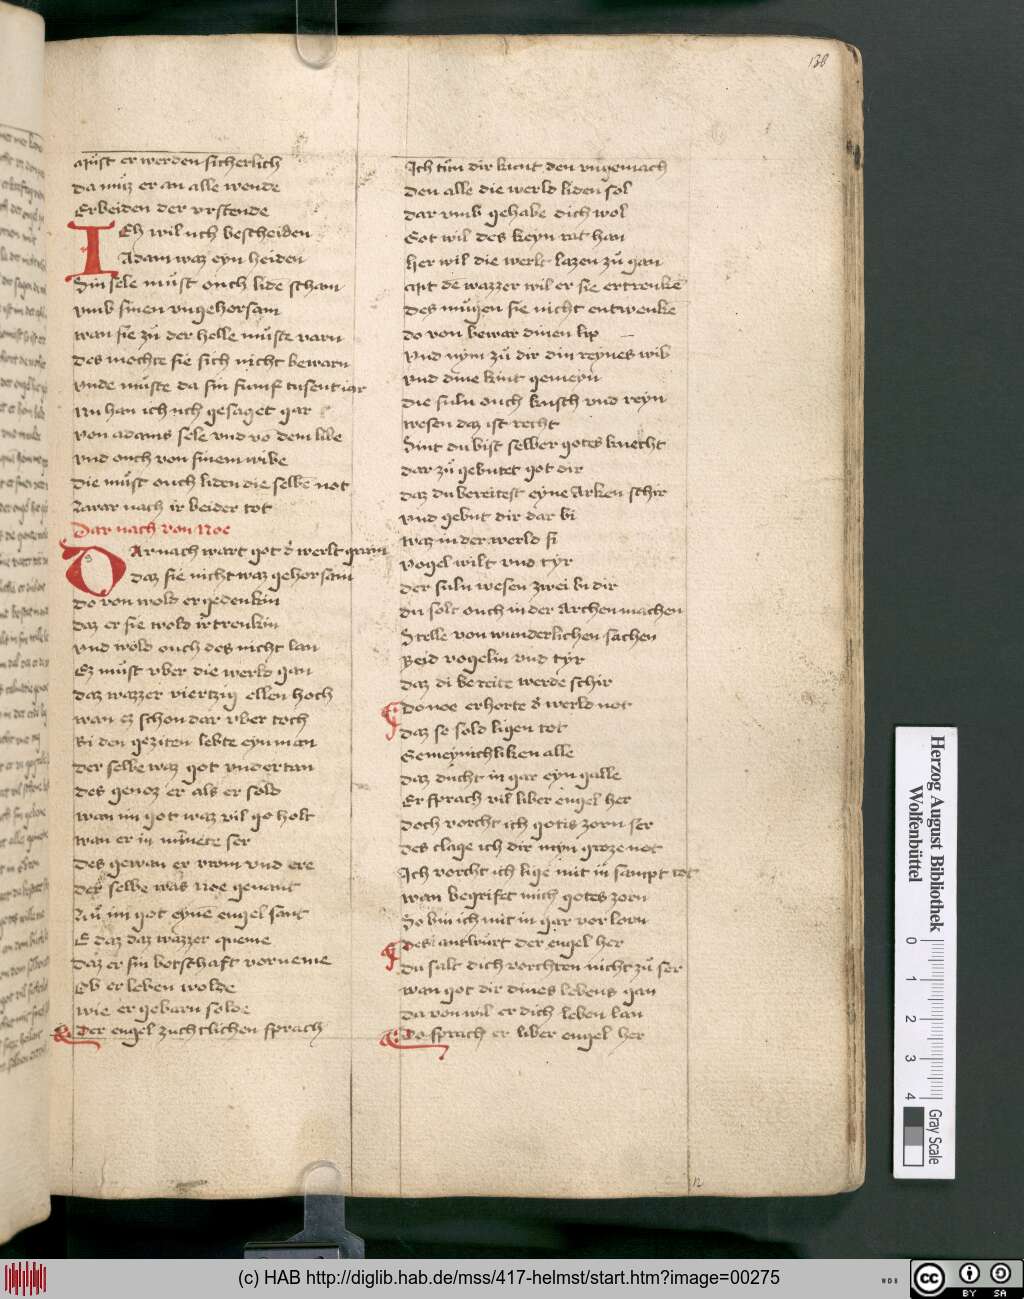 138
Müst er werden sicherlich
da müz er an alle wende
Erbeiden der vrstende
Ich wil uch bescheiden
Adam waz eyn heiden
Sin sele müst ouch lide scham
vmb sinen vngehorsam
wan sie zů der helle můste varn
des mochte sie sich nicht bewarn
vnde můste da sin funf tusent iar
Nu han ich uch gesaget gar
von adams sele vnd vō dem libe
vnd ouch von sinem wibe
die můst ouch liden die selbe not
zwar nach ir beider tot
Dar nach von Noe
Darnach wart got d' werlt gram
daz sie nicht waz gehorsam
do von wold er gedenkin
daz er sie wold ir trenkin
vnd wold ouch des nicht lan
Ez můst vber die werld gan
daz wazzer viertzig ellen hoch
wan ez schon dar vber zoch
Bi den geziten lebte eyn man
der selbe waz got vndertan
des genoz er als er sold
wan im got waz vil go holt
wan er in mynete ser
des gewan er vrum vnd ere
der selbe was Noe genant
Nů im got eyne engel sant
E daz daz wazzer queme
daz er sin botschaft vorneme
Ob er leben wolde
wie er gebarn solde
Der engel zuchtlichen sprach
Ich tůn dir kunt den vngemach
den alle die werld liden sol
dar vmb gehabe dich wol
Got wil des keyn rat han
her wil die werlt lazen zů gan
Mit dē wazzer wil er sie ertrenkē
des mügen sie nicht entwenkē
do von bewar dinen lip
vnd nym zů dir din reynes wib
vnd dine kint gemeyn
die suln ouch kusch vnd reyn
wesen daz ist recht
Sint du bist selber gotes knecht
dar zů gebutet got dir
daz du bereitest eyne Arken schir
vnd gebut dir dar bi
waz in der werld si
vogel wilt vnd tyr
der suln wesen zwei bi dir
du solt ouch in der Archen machen
Stelle von wunderlichen sachen
Beid vogelin vnd tyr
daz di bereite werde schir
Do noe erhorte d' werld not
daz se sold ligen tot
Gemeynichliken alle
daz ducht in gar eyn galle
Er sprach vil liber engel her
doch vorcht ich gotis zorn ser
des clage ich dir myn groze not
Ich vorcht ich lige mit in sampt tot
wan begrifet mich gotes zorn
So bin ich mit in gar vorlorn
Des antwůrt der engel her
du salt dich vorchten nicht zů ser
wan got dir dines lebens gan
da von wil er dich leben lan
Do sprach er liber engel her
12
Herzog August Bibliothek
Wolfenbüttel
0 1 2 3 4
Gray Scale
(c) HAB http://diglib.hab.de/mss/417-helmst/start.htm?image=00275
WDB
cc
BY SA